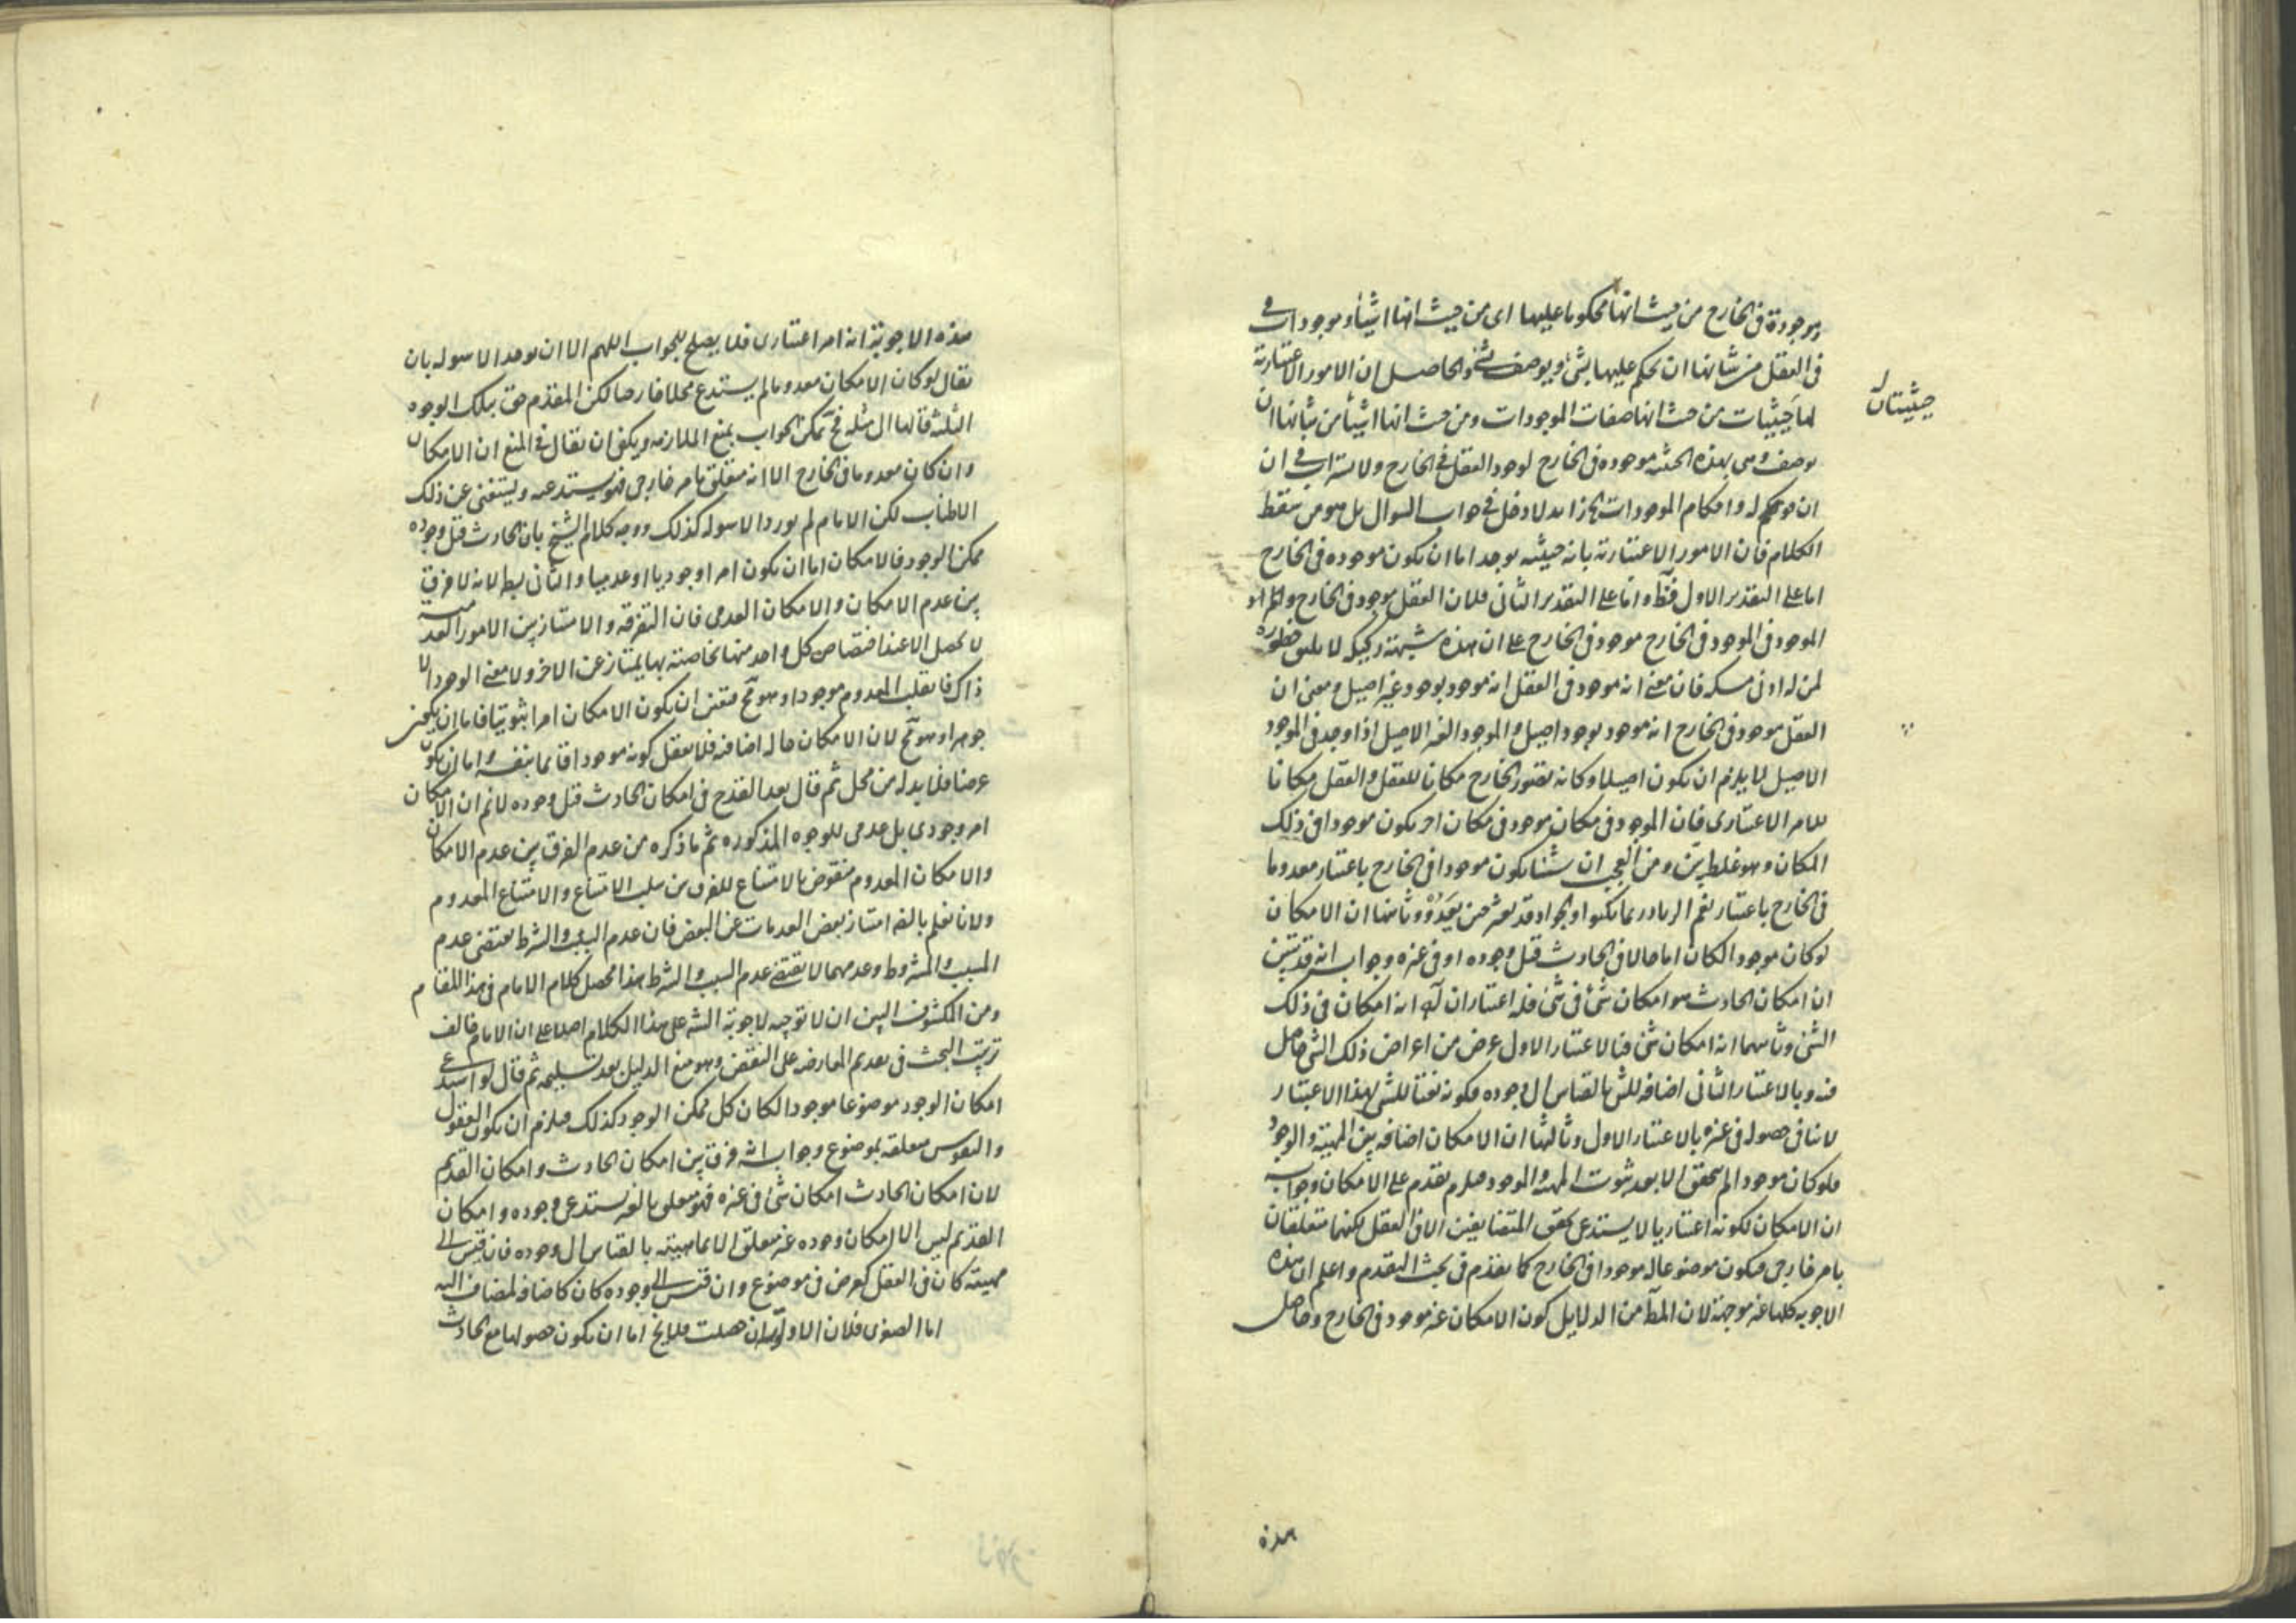 وموجودة في الخارج من حيث انها محكوما عليها اى من حيث انها اشياء وموجودات في
في العقل من شانها ان يحكم عليها بشئ ويوصف بشئ والحاصل ان الامور الاعتبارية
لها حيثيات من حيث انها صفات الموجودات ومن حيث انها اشياء من شانها ان
حيثيتان
يوصف وهى بهذه الحيثية موجوده في الخارج لوجود العقل في الخارج ولا استراب في ان
ان هو يحكم له واحكام الموجودات لا دخل في جواب السوال بل هو من سقط
الكلام فان الامور الاعتبارية بانه حيثية يوجد اما ان يكون موجوده في الخارج
اما على التقدير الاول فظ واما على التقدير الثاني فلان العقل موجود في الخارج والامر
الموجود في الموجود في الخارج موجود في الخارج على ان هذه شبهة ركيكه لا يليق خطوره
لمن له ادنى مسكه فان معنى انه موجود في العقل انه موجود بوجود غير اصيل ومعنى ان
العقل موجود في الخارج انه موجود بوجود اصيل والموجود الغير الاصيل اذا وجد في الموجود
الاصيل لا يلزم ان يكون اصيلا وكانه تصور الخارج مكانا للعقل والعقل مكانا
للامر الاعتبارى فان الموجود في مكان موجود في مكان اخر يكون موجودا في ذلك
المكان وهو غلط بين ومن العجب ان شيئا يكون موجودا في الخارج باعتبار معدوما
في الخارج باعتبار نعم الرماد ربما يكبوا والجواد قد يعثر حين يعدو وثانيها ان الامكان
لو كان موجودا لكان اما حالا في الحادث قبل وجوده او في غيره وجوابه انه قد تبين
ان امكان الحادث هو امكان شئ في شئ فله اعتباران انه امكان في ذلك
الشئ وثانيهما انه امكان شئ فبالاعتبار الاول عرض من اعراض ذلك الشئ حاصل
فيه وبالاعتبار الثاني اضافه للشئ بالقياس الى وجوده فكونه نعتا للشئ بهذا الاعتبار
لا ينافى حصوله في غيره بالاعتبار الاول وثالثها ان الامكان اضافه بين المهية والوجود
فلو كان موجودا لم يتحقق الا بعد ثبوت المهية والوجود فيلزم تقدم على الامكان وجوابه
ان الامكان لكونه اعتباريا لا يستدعى تحقق المتضايفين الا في العقل لكنهما متعلقان
بامر خارجى فيكون موضوعا له موجودا في الخارج كما تقدم في بحث التقدم واعلم ان هذه
الاجوبه كلها غير موجهة لان المط من الدلايل كون الامكان غير موجود في الخارج وحاصل
هذه
هذه الاجوبة انه امر اعتبارى فلا يصلح للجواب اللهم الا ان يوجه الاسوله بان
يقال لو كان الامكان معدوما لم يستدع محلا خارجا لكن المقدم حق بتلك الوجوه
الثلثة فالتالى مثله فح يمكن الجواب بمنع الملازمه ويكفى ان يقال في المنع ان الامكان
وان كان معدوما في الخارج الا انه متعلق بامر خارجى فهو يستدعيه ويستغنى عن ذلك
الاطناب لكن الامام لم يورد الاسوله كذلك ووجه كلام الشيخ بان الحادث قبل وجوده
ممكن الوجود فالامكان اما ان يكون امرا وجوديا او عدميا والثاني بط لانه لا فرق
بين عدم الامكان والامكان العدمى فان التفرقه والامتياز بين الامور العدمية
لا تحصل الا عند اختصاص كل واحد منها بخاصية بها يمتاز عن الاخر ولا معنى الوجود الا
ذاك فانقلب المعدوم موجودا وهو مح فتعين ان يكون الامكان امرا ثبوتيا فاما ان يكون
جوهرا وهو مح لان الامكان حاله اضافيه فلا يعقل كونه موجودا قائما بنفسه واما ان يكون
عرضا فلا بد له من محل ثم قال بعد القدح في امكان الحادث قبل وجوده لانم ان الامكان
امر وجودى بل عدمى للوجوه المذكوره ثم ما ذكره من عدم الفرق بين عدم الامكان
والامكان المعدوم منقوض بالامتناع للفرق بين سلب الامتناع والامتناع المعدوم
ولانا نعلم بالضرورة امتياز بعض العدمات عن البعض فان عدم السبب والشرط يقتضى عدم
المسبب والمشروط وعدمهما لا يقتضى عدم السبب والشرط هذا محصل كلام الامام في هذا المقام
ومن المكشوف البين ان لا توجيه لاجوبة الش على هذا الكلام اصلا على ان الامام خالف
ترتيب البحث في تقديم المعارضه على النقض وهو منع الدليل بعد تسليمه ثم قال لو استدعى
امكان الوجود موضوعا موجودا لكان كل ممكن الوجود كذلك فيلزم ان يكون العقول
والنفوس متعلقه بموضوع وجواب الش فرق بين امكان الحادث وامكان القديم
لان امكان الحادث امكان شئ في غيره فهو متعلق بالغير يستدعى وجوده وامكان
القديم ليس الا امكان وجوده غير متعلق الا بماهيته بالقياس الى وجوده فان قيس الى
مهيته كان في العقل كعرض في موضوع وان قيس الى وجوده كان كاضافة لمضاف اليه
اما الصغرى فلان الاولوية ان حصلت فلا يخ اما ان يكون حصولها مع الحادث